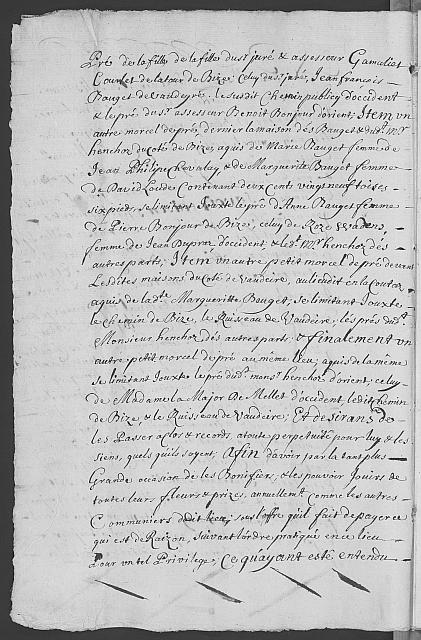 Pré de la fille de la fille du Sr. juré & assesseur Gamaliel
Courlet de la tour de Bize; Celuy du Sr. juré, Jean François
Bauget de Vaudeyre, le susdit Chemin publicq d'occident
& le pré du Sr. assesseur Benoit Bonjour d'orient; Item un
autre morcel de pré, dernier la maison dés Bauget & dud. Mr.
henchoz du Coté de Bize, aquis de Marie Bauget femme de
Jean Philipe Chevalay, & de Marguerite Bauget femme
de David Loude Contenant deux Cents vingt neuf toises
six pieds, se limitant Jouxte le pré d'Anne Bauget femme
de Pierre Bonjour de Bize, celuy de Roze Wadens,
femme de Jean Dupra d'occident & led. Mr. henchoz dés
autres parts; Item un autre petit morcel de pré devant
Lesdites maisons du Coté de Vaudeire, au lieu dit en la Coutaz
aquis de lad.te Marguerite Bauget; se limitant Jouxte,
le Chemin de Bize, le Ruisseau de Vaudeire, lés prés dud.
Monsieur henchoz dés autres parts; & finalement un
autre petit morcel de pré au même lieu; aquis de la même
se limitant Jouxte le pré dud. mons. henchoz d'orient; celuy
de Madame la Major De Mellet d'occident, ledit Chemin
de Bize, & le Ruisseau de Vaudeire; Et desirans de
les Passer à Clos & records à toute perpetuité pour luy & les
siens, quels qu'ils soyent; Afin d'avoir par la tant plus
Grande occasion de les Bonifier, & les pouvoir Jouïr de
toutes leurs fleurs & prizes, annuellemt. Comme les autres
Communiers dudit lieu; sous l'offre qu'il fait de payer ce
qui est de Raizon, Suivant l'ordre pratiqué en ce lieu
Pour un tel Privilege; Ce qu'ayant esté entendu